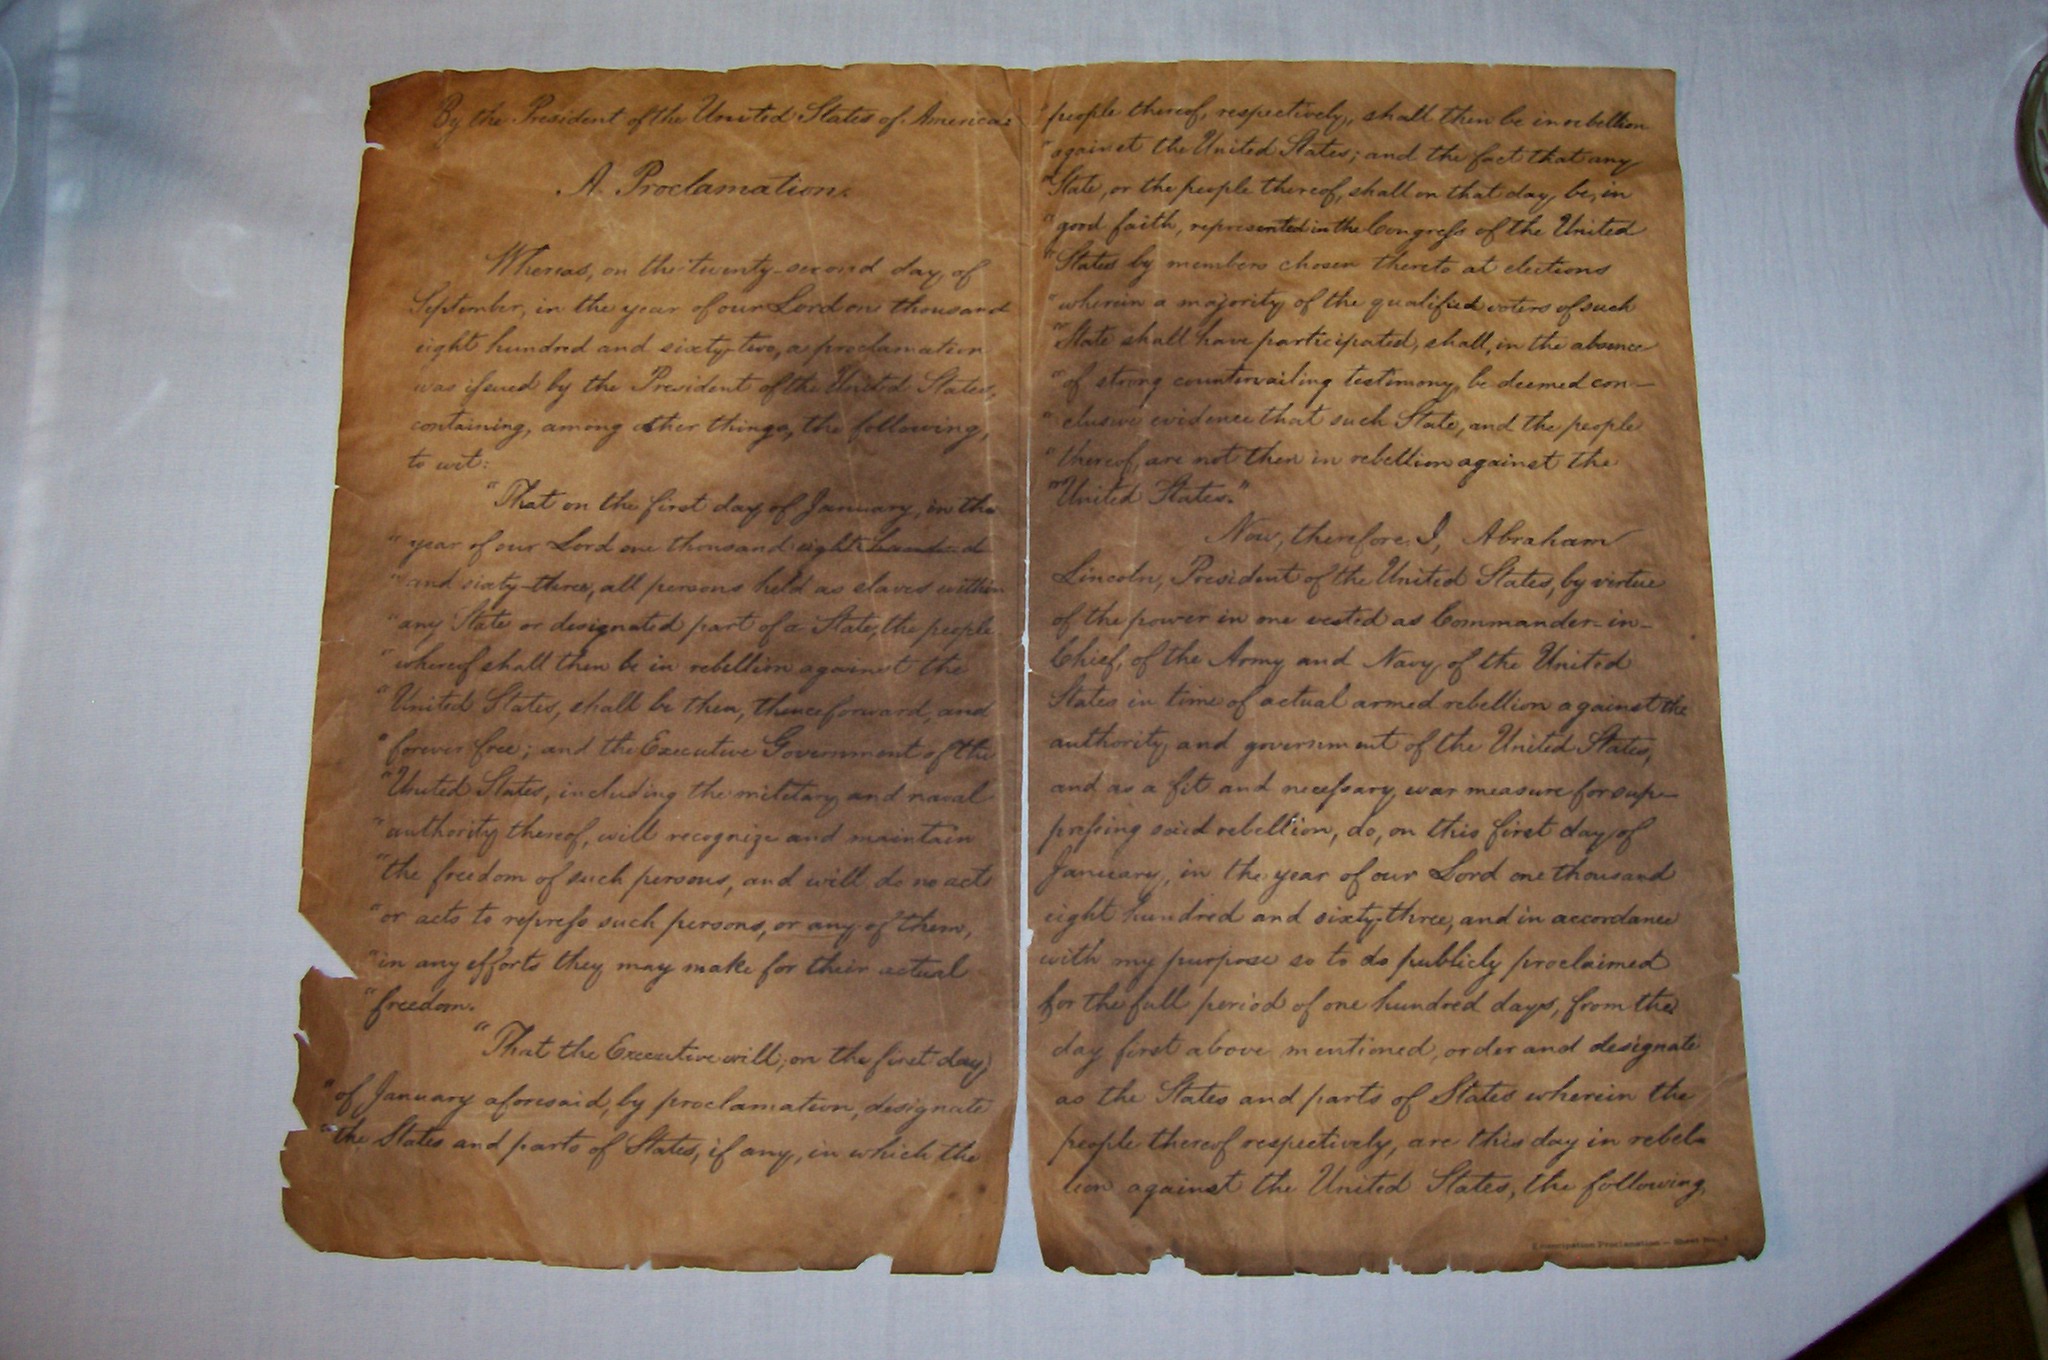 By the President of the United States of America:
A Proclamation.
Whereas, on the twenty-second day of
September, in the year of our Lord one thousand
eight hundred and sixty-two, a proclamation
was issued by the President of the United States,
containing, among other things, the following,
to wit:
"That on the first day of January, in the
"year of our Lord one thousand eight hundred
"and sixty-three, all persons held as slaves within
"any State or designated part of a State, the people
"whereof shall then be in rebellion against the
"United States, shall be then, thenceforward, and
"forever free; and the Executive Government of the
"United States, including the military and naval
"authority thereof, will recognize and maintain
"the freedom of such persons, and will do no act
"or acts to repress such persons, or any of them,
"in any efforts they may make for their actual
"freedom.
"That the Executive will, on the first day
"of January aforesaid, by proclamation, designate
"the States and parts of States, if any, in which the
"people thereof, respectively, shall then be in rebellion
"against the United States; and the fact that any
"State, or the people thereof, shall on that day, be, in
"good faith, represented in the Congress of the United
"States by members chosen thereto at elections
"wherein a majority of the qualified voters of such
"State shall have participated, shall, in the absence
"of strong countervailing testimony, be deemed con-
"clusive evidence that such State, and the people
"thereof, are not then in rebellion against the
"United States."
Now, therefore I, Abraham
Lincoln, President of the United States, by virtue
of the power in me vested as Commander-in-
Chief, of the Army and Navy of the United
States in time of actual armed rebellion against the
authority and government of the United States,
and as a fit and necessary war measure for sup-
pressing said rebellion, do, on this first day of
January, in the year of our Lord one thousand
eight hundred and sixty-three, and in accordance
with my purpose so to do publicly proclaimed
for the full period of one hundred days, from the
day first above mentioned, order and designate
as the States and parts of States wherein the
people thereof respectively, are this day in rebel-
lion against the United States, the following,
Emancipation Proclamation — Sheet No. 1